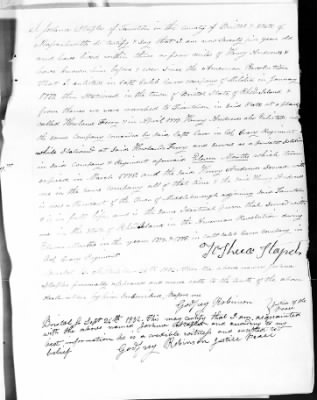 I Joshua Staples of Taunton in the county of Bristol & State of
Massachusetts do certify & say that I am now seventy six years old
and have lived within three or four miles of Henry Andrews &
have known him before & ever since the American Revolution
that I enlisted in Capt Caleb Carrs company of Soldiers in January
1777, then stationed in the town of Bristol State of Rhode Island &
from thence we were marched to Tiverton in said State at a place
called Howland Ferry & in April 1777 Henry Andrews also Enlisted in
the same company commanded by said Capt Carr in Col Crary Regiment
while stationed at said Howlands Ferry and served as a private soldier
in said Company & Regiment afterwards Eleven Months which term
expired in March 1778 and the said Henry Andrews served with
me in the same company all of that time & the said Henry Andrews
was a of the town of adjoining said Taunton
& is in full life, and is the same that served with
me in the State of Rhode Island in the American Revolution during
Eleven Months in the years 1777 & 1778 in Capt Caleb Carrs company in
Col Crary Regiment
Joshua Staples
Bristol Sept 25th 1832, then the above named Joshua
Staples personally appeared and made oath to the truth of the above
by him subscribed, before me
Godfrey Robinson Justice of the Peace
Bristol ss Sept 25th 1832, this may certify that I am acquainted
with the above named Joshua Staples and according to my
best information he is a credible witness and entitled to
belief
Godfrey Robinson Justice Peace